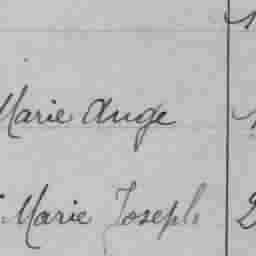 Marie Ange
Marie Joseph